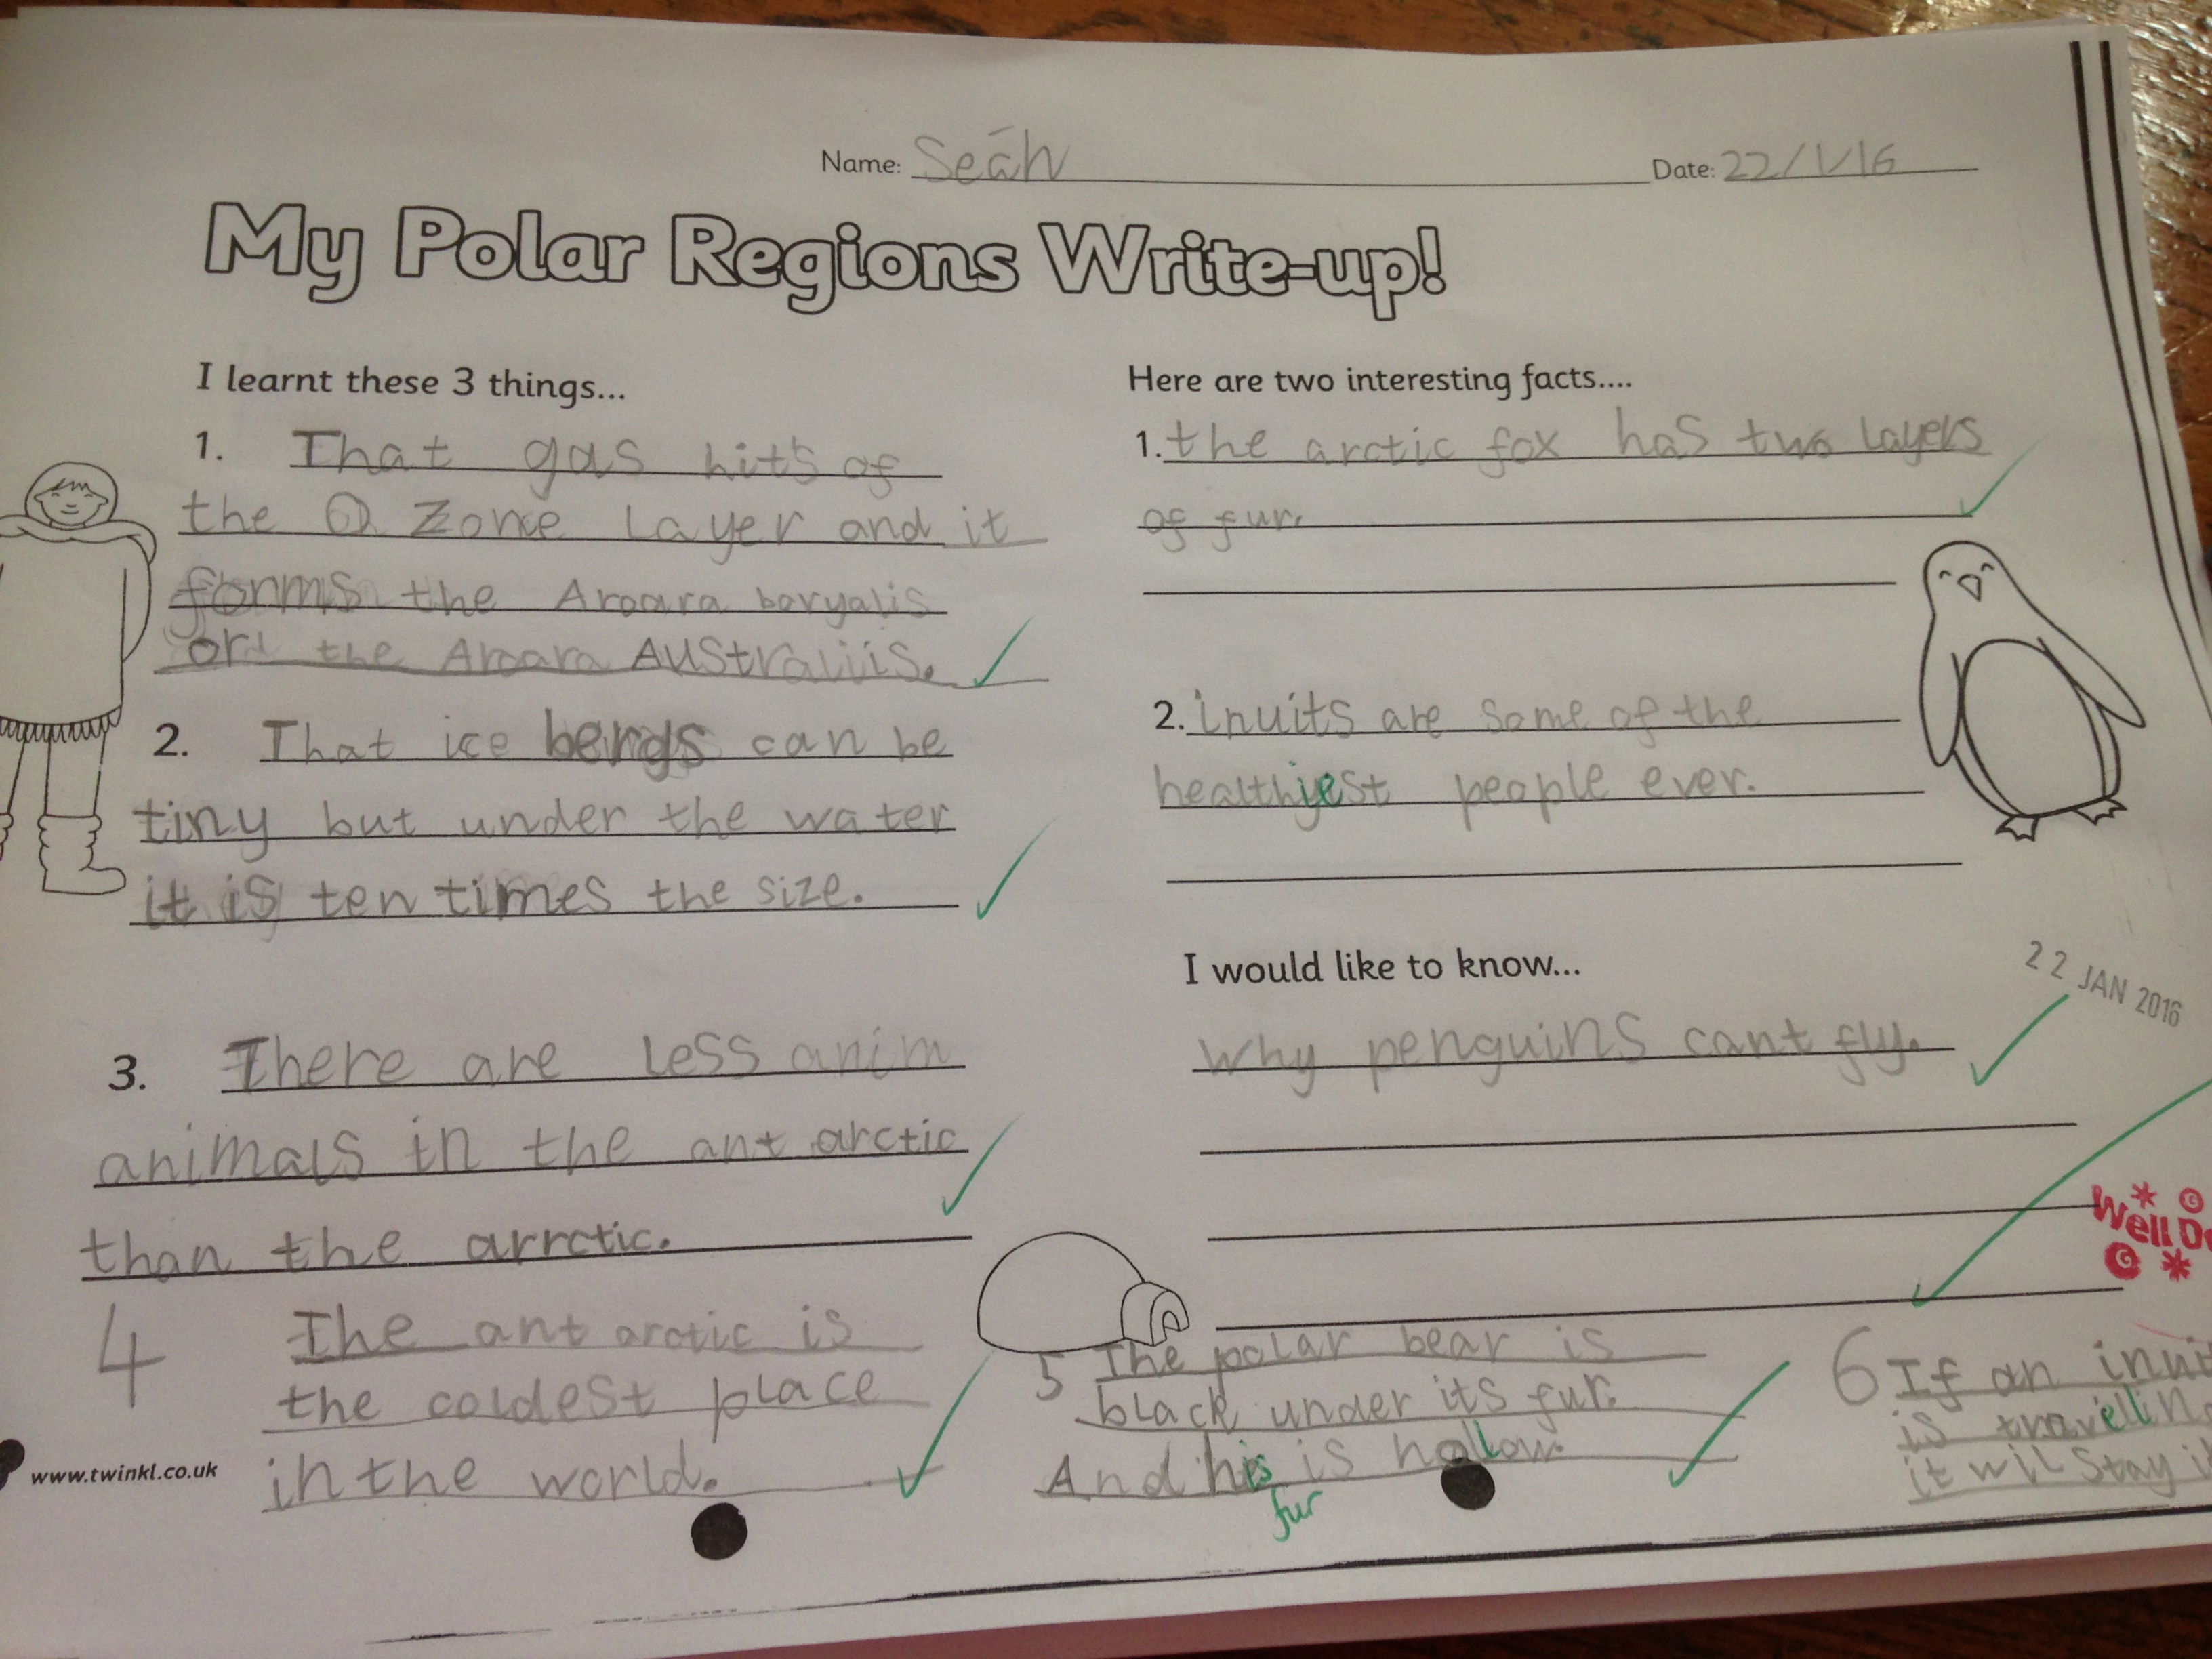 Name: Seán
Date: 22/1/16
My Polar Regions Write-up!
I learnt these 3 things...
1. That gas hits of
the O Zone Layer and it
forms the Aroara boryalis
or the Aroara AUStraliis.
2. That ice bergs can be
tiny but under the water
it is ten times the size.
3. There are less anim
animals in the ant arctic
than the arrctic.
4 The ant arctic is
the coldest place
in the world.
www.twinkl.co.uk
Here are two interesting facts....
1. the arctic fox has two layers
of fur.
2. inuits are some of the
healthiyest people ever.
I would like to know...
why penguins cant fly.
22 JAN 2016
Well
5 The polar bear is
black under its fur.
And his is hollow.
fur
6 If an
is
it wil Stay